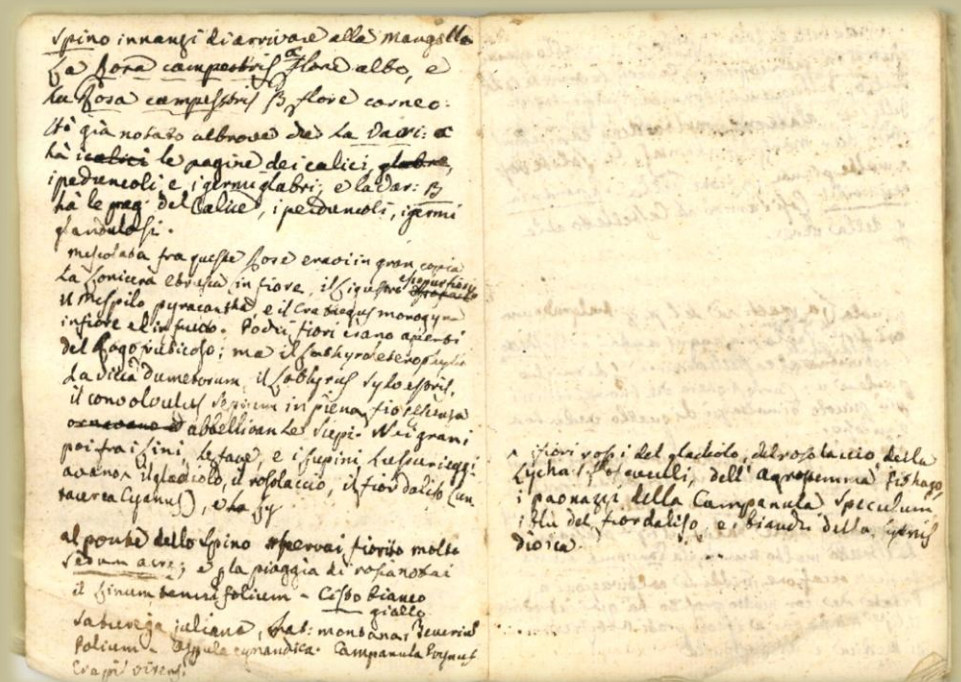 Spino innanzi di arrivare alla
La Rosa campestris α flore albo, e
La Rosa campestris β flore carneo:
Hò già notato altrove che La Vari: α
hà i calici le pagine dei calici, glabre,
i peduncoli e i germi glabri; e la Var: β
hà le pag: del Calice, i peduncoli, i germi
glandulosi.
Mescolata fra queste Rose eravi in gran copia
La Lonicera etrusca in fiore, il Ligustro
il Mespilo pyracantha, e il Crataegus monogyna
in fiore e in frutto. Pochi fiori erano aperti
del Rogo fruticoso; ma il Lathyro eterophyllo
La Viccia dumetorum, il Lathyrus sylvestris,
il convolvulus sepium in piena fiorescenza
abbellivan le siepi. Nei grani
poi fra i Lini, le fave, e i Lupini lussureggi
avano ^ il gladiolo, il rosolaccio, il fiordaliso (Cen
taurea Cyanus), e
al ponte dello Spino osservai fiorito molto
Sedum acre; e p la piaggia di
il Linum tenuifolium - Cisto bianco
giallo
Satureja juliana, Sat: montana, Teucrium
Polium - Asperula cynanchica. Campanula
Crapis virens.
^ i fiori rossi del gladiolo, del rosolaccio della
Lychnis flos cuculli, dell'agrostemma Githago,
i paonazzi della Campanula Speculum,
i blù del fiordaliso, e i bianchi della Lychnis
dioica.